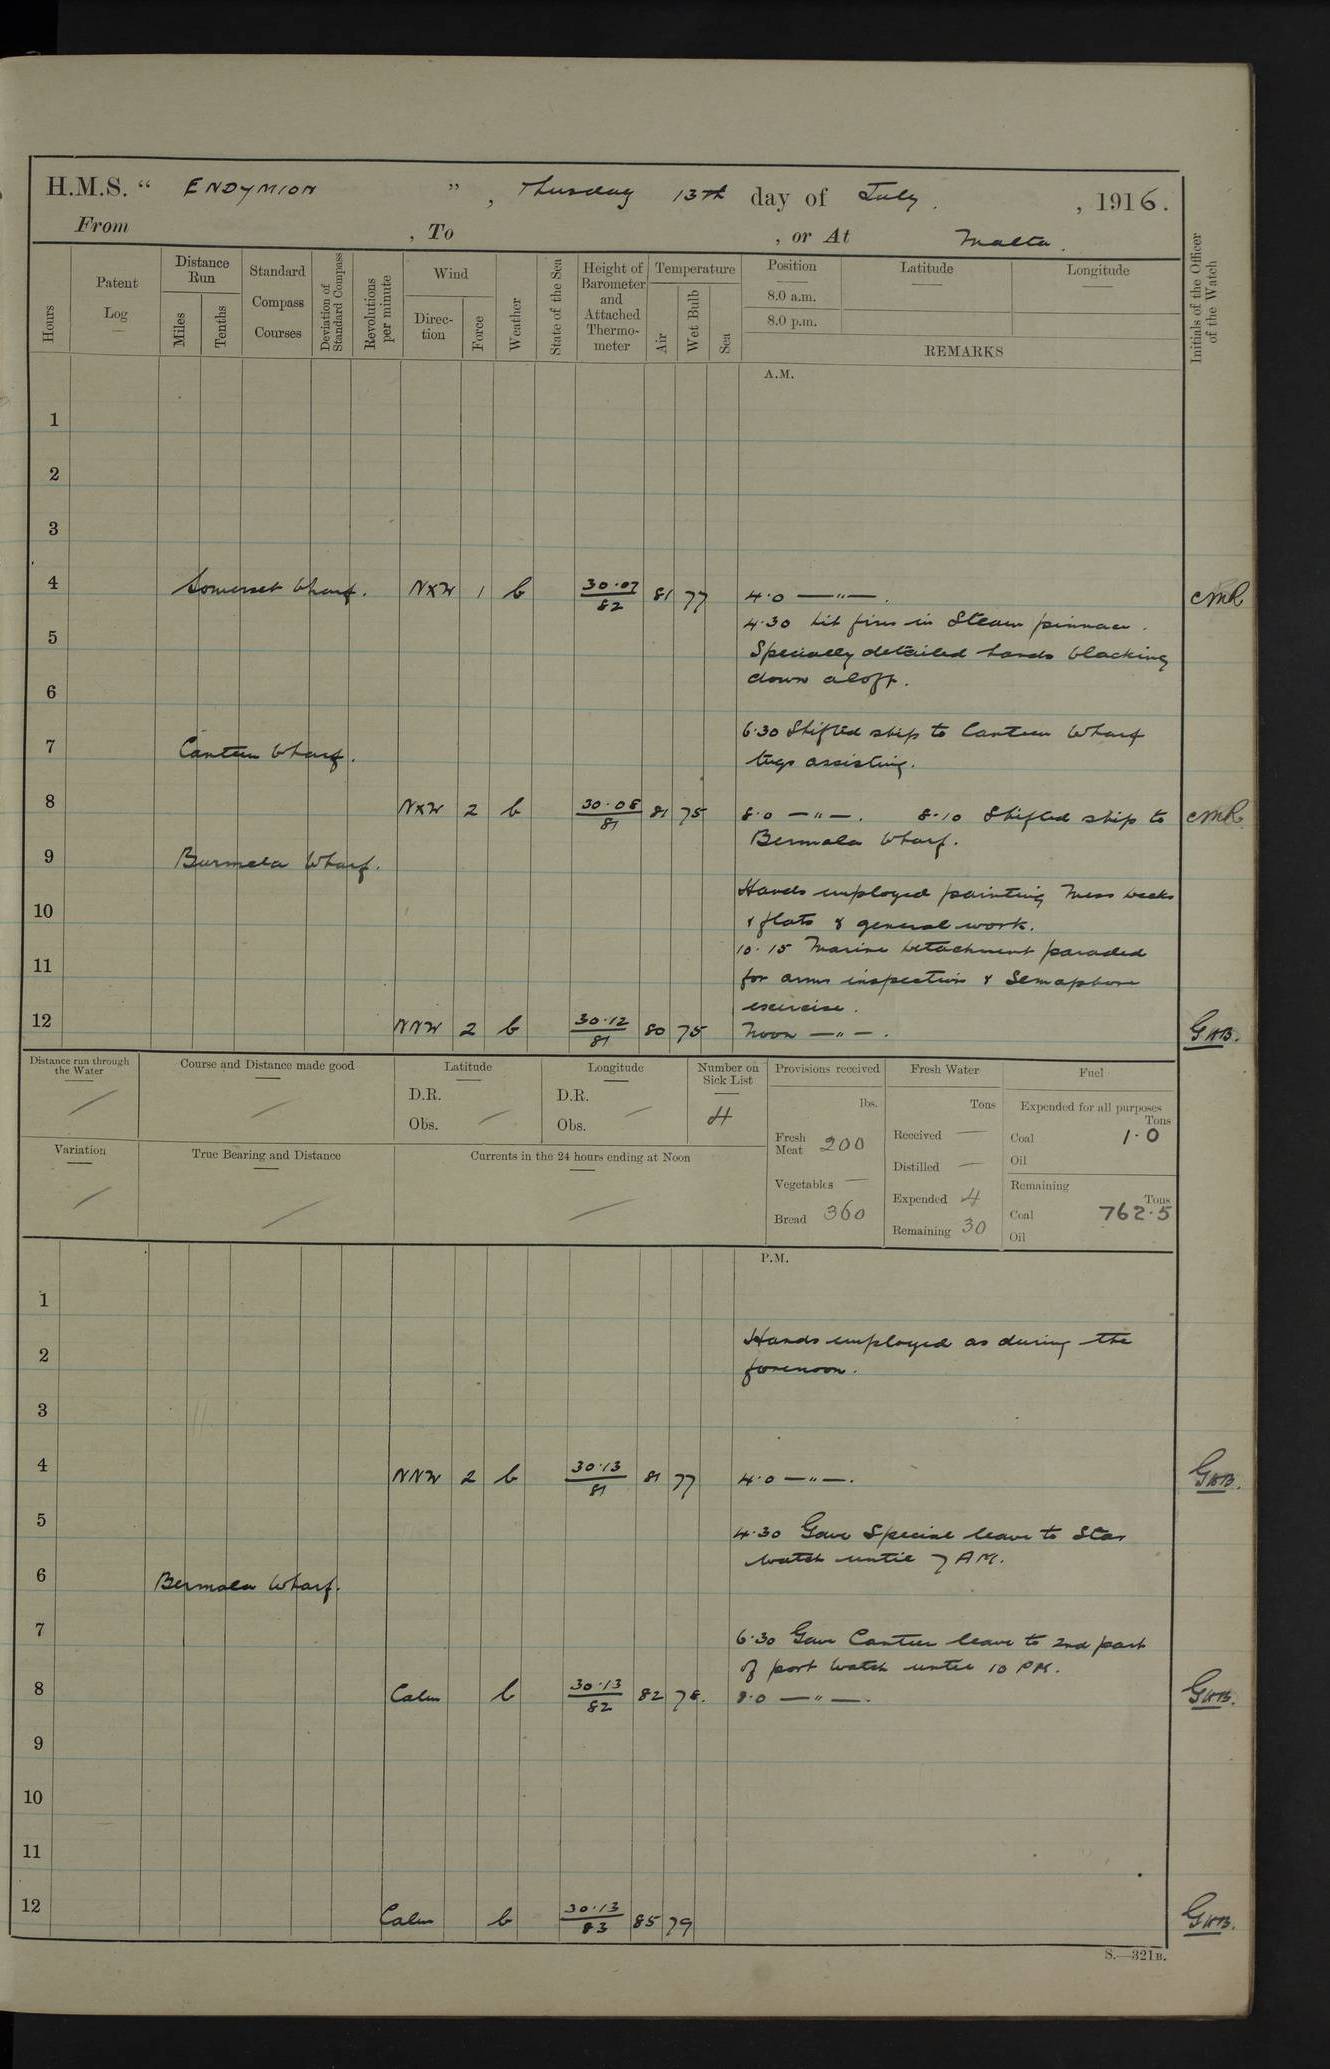 H.M.S. “ ENDYMION ”, Thursday 13th day of July , 1916.
From , To , or At Malta.
Hours
Patent Log
Distance Run
Miles
Tenths
Standard Compass Courses
Deviation of Standard Compass
Revolutions per minute
Wind
Direction
Force
Weather
State of the Sea
Height of Barometer and Attached Thermometer
Temperature
Air
Wet Bulb
Sea
Position
8.0 a.m.
8.0 p.m.
Latitude
Longitude
REMARKS
Initials of the Officer of the Watch
A.M.
1
2
3
4 Somerset Wharf. NXW 1 b 30.07/82 81 77 4.0 —"—. CMR
4.30 Lit fires in Steam pinnace.
5 Specially detailed hands blacking
down aloft.
6
6.30 Shifted ship to Canteen Wharf
7 Canteen Wharf. tugs assisting.
8 NXW 2 b 30.08/81 81 75 8.0 —"—. 8.10 Shifted ship to CMR
Bermola Wharf.
9 Burmela Wharf.
Hands employed painting Mess decks
10 & flats & general work.
10.15 Marine Detachment paraded
11 for arms inspection & Semaphore
exercise.
12 NNW 2 b 30.12/81 80 75 Noon —"—. GWB.
Distance run through the Water
Course and Distance made good
Latitude
D.R.
Obs.
Longitude
D.R.
Obs.
Number on Sick List
4
Provisions received
lbs.
Fresh Meat 200
Vegetables —
Bread 360
Fresh Water
Tons
Received —
Distilled —
Expended 4
Remaining 30
Fuel
Expended for all purposes
Tons
Coal 1.0
Oil
Remaining
Tons
Coal 762.5
Oil
Variation
True Bearing and Distance
Currents in the 24 hours ending at Noon
P.M.
1
Hands employed as during the
2 forenoon.
3
4 NNW 2 b 30.13/81 81 77 4.0 —"—. GWB.
5 4.30 Gave Special leave to Star
watch until 7 AM.
6 Bermola Wharf.
7 6.30 Gave Canteen leave to 2nd part
of port watch until 10 PM.
8 Calm b 30.13/82 82 78. 8.0 —"—. GWB.
9
10
11
12 Calm b 30.13/83 85 79 GWB.
S.—321B.